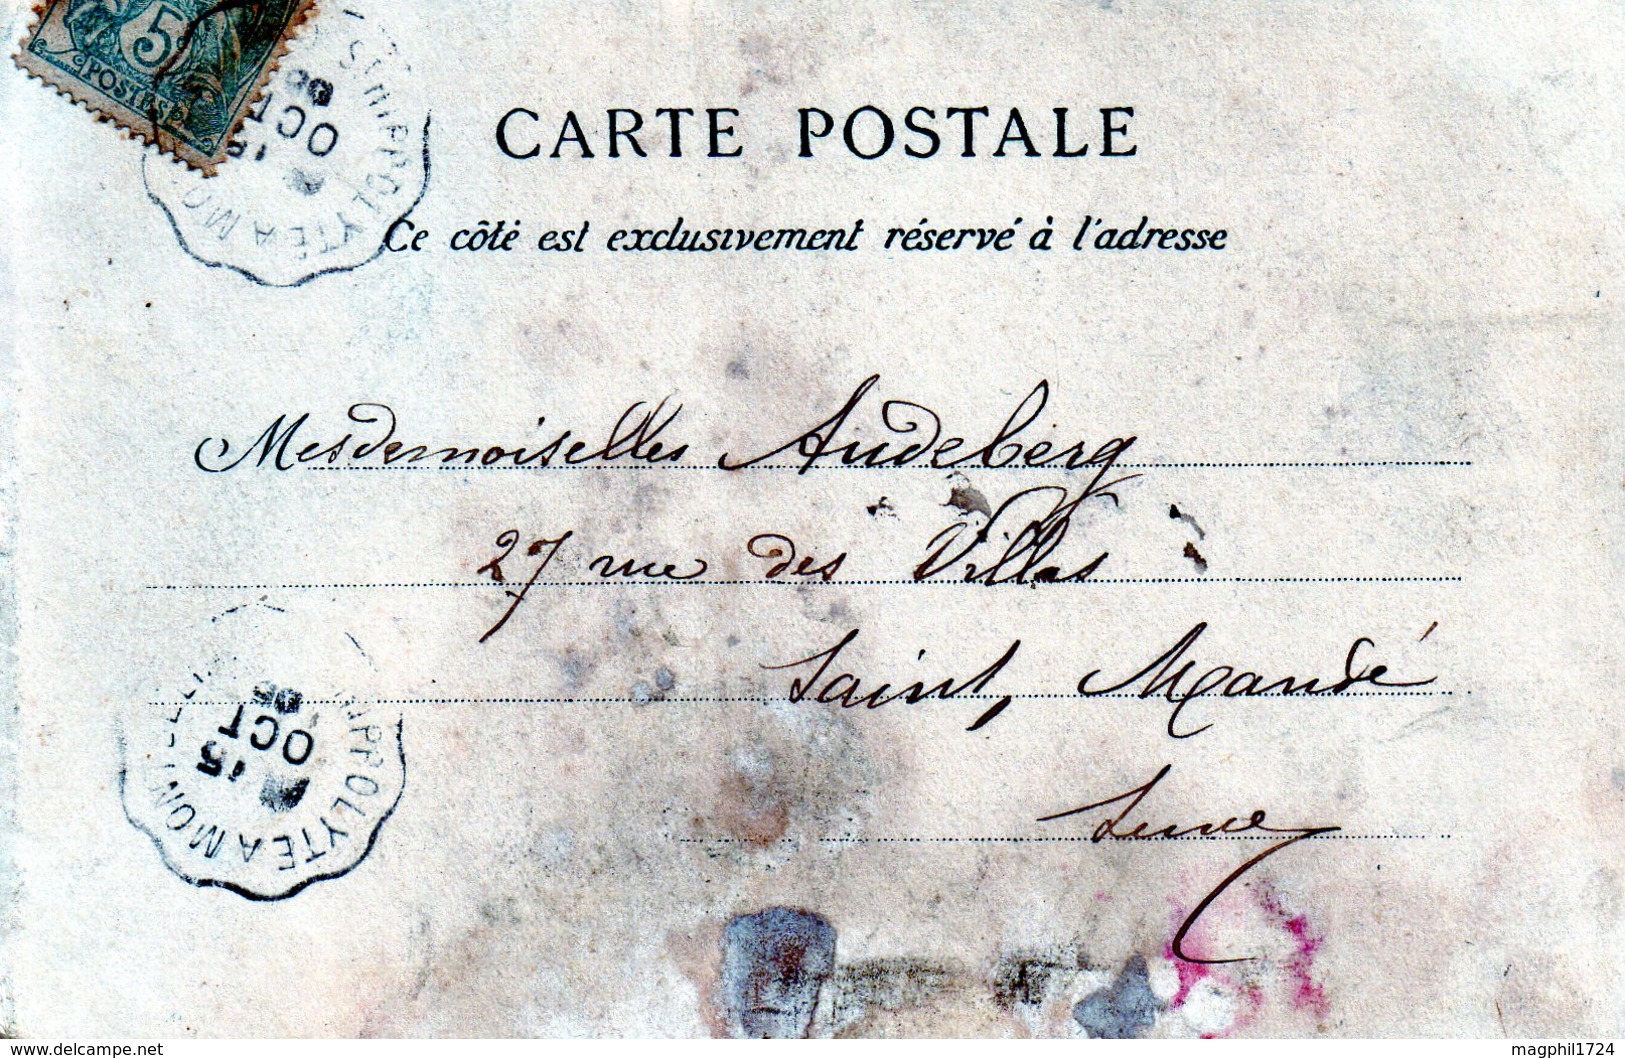 5c
POSTES
ST HIPPOLYTE A MO
15
OCT
05
CARTE POSTALE
Ce côté est exclusivement réservé à l'adresse
Mesdemoiselles Audeberg
27 rue des Villas
Saint, Mandé
Seine
HIPPOLYTE A MON
15
OCT
05
www.delcampe.net
magphil1724